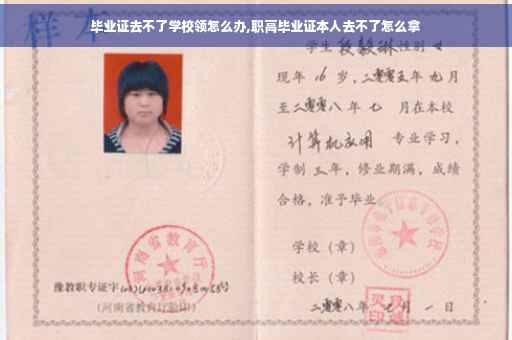 毕业证去不了学校领怎么办,职高毕业证本人去不了怎么拿
样本
学生段毅琳性别女
现年16岁,二零零五年九月
至二零零八年七月在本校
计算机应用 专业学习,
学制三年,修业期满,成绩
合格,准予毕业。
学校(章)
校长(章)
二零零八年七月一日
河南省教育厅
豫教职专证字
(河南省教育厅验印)